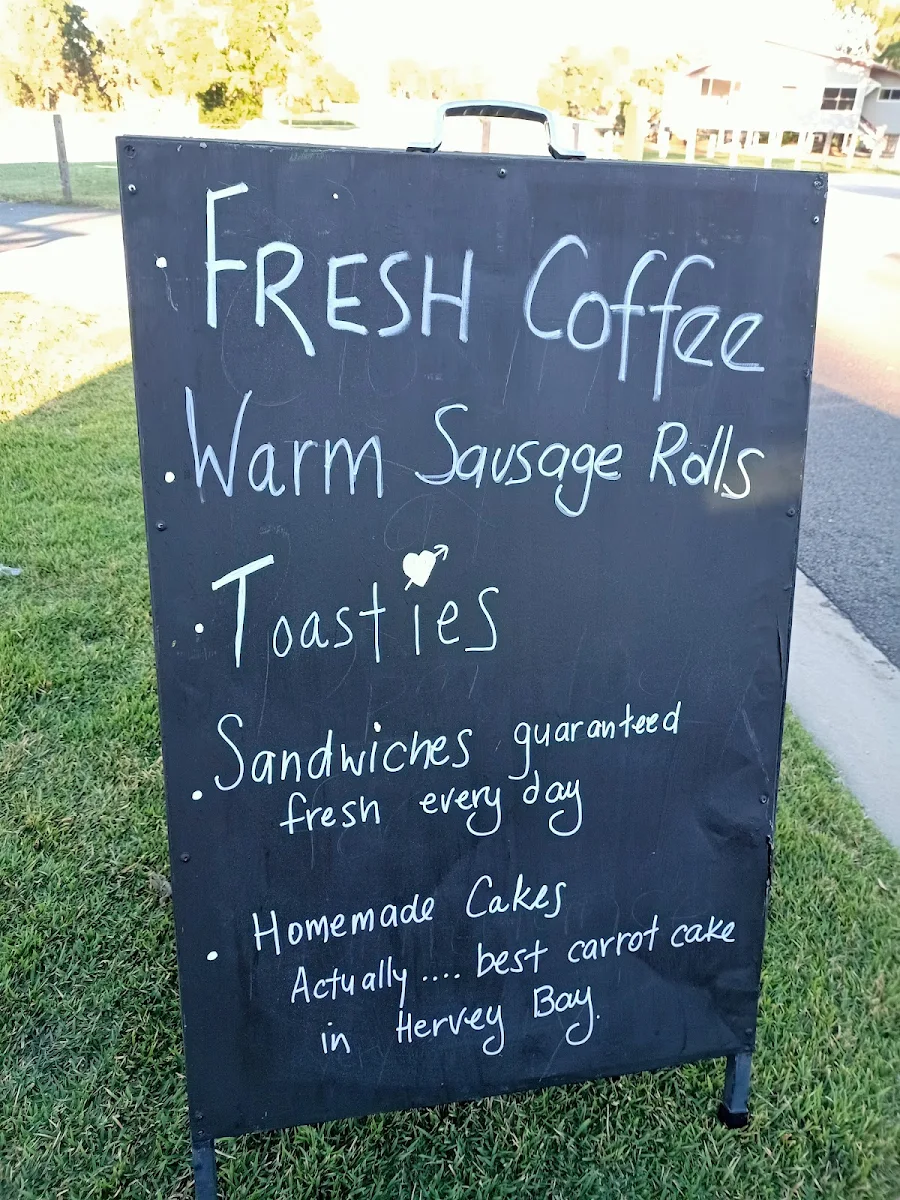 • FRESH Coffee
• Warm Sausage Rolls
• Toasties
• Sandwiches guaranteed
fresh every day
• Homemade Cakes
Actually .... best carrot cake
in Hervey Bay.